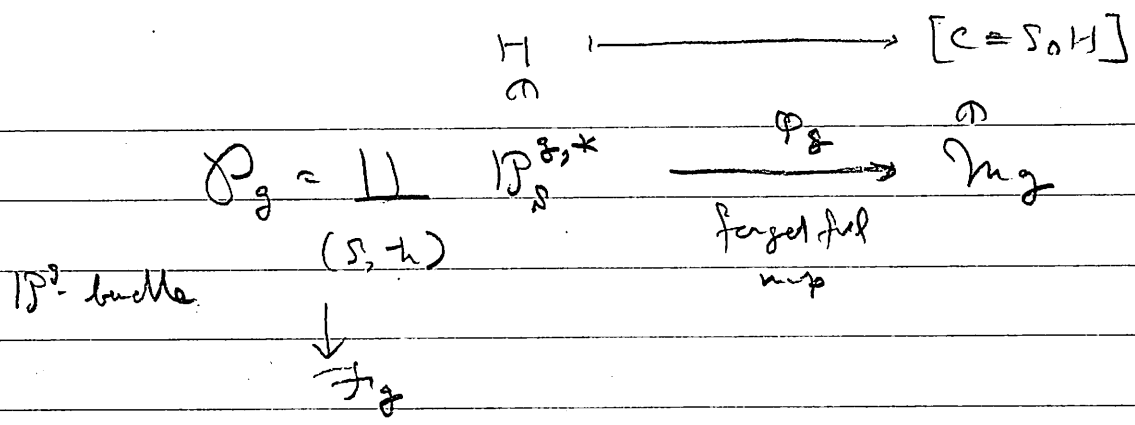 H ⟼ [C = S ∩ H]
∩ ∩
𝒫_g = ∐ ℙ_S^{g,*} ⟶ ℳ_g
φ_g
(S, h) forgetful
map
ℙ^g-bundle
↓
ℱ_g